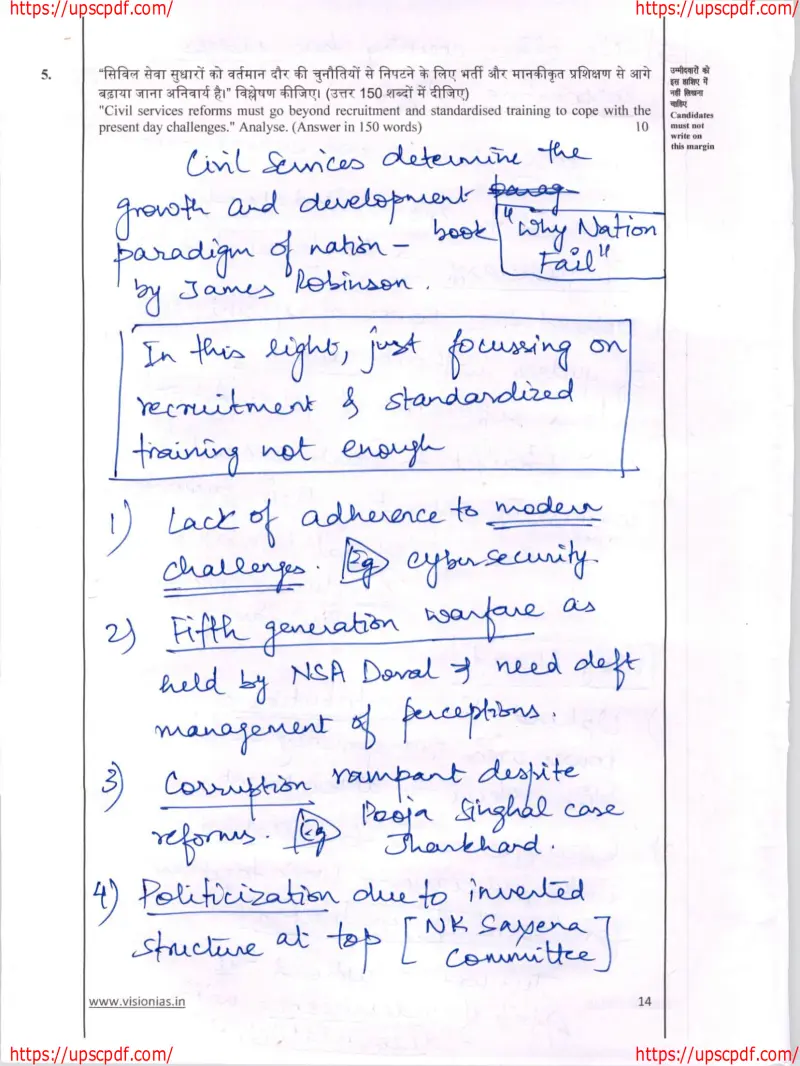 https://upscpdf.com/ https://upscpdf.com/
5. "सिविल सेवा सुधारों को वर्तमान दौर की चुनौतियों से निपटने के लिए भर्ती और मानकीकृत प्रशिक्षण से आगे
बढ़ाया जाना अनिवार्य है।" विश्लेषण कीजिए। (उत्तर 150 शब्दों में दीजिए)
"Civil services reforms must go beyond recruitment and standardised training to cope with the
present day challenges." Analyse. (Answer in 150 words) 10
उम्मीदवारों को
इस हाशिए में
नहीं लिखना
चाहिए
Candidates
must not
write on
this margin
Civil Services determine the
growth and development parag
paradigm of nation – book "Why Nation
Fail"
by James Robinson.
In this light, just focussing on
recruitment & standardized
training not enough
1) Lack of adherence to modern
challenges. Eg cybersecurity
2) Fifth generation warfare as
held by NSA Doval → need deft
management of perceptions.
3) Corruption rampant despite
reforms. Eg Pooja Singhal case
Jharkhand.
4) Politicization due to inverted
structure at top [NK Saxena
Committee]
www.visionias.in 14
https://upscpdf.com/ https://upscpdf.com/